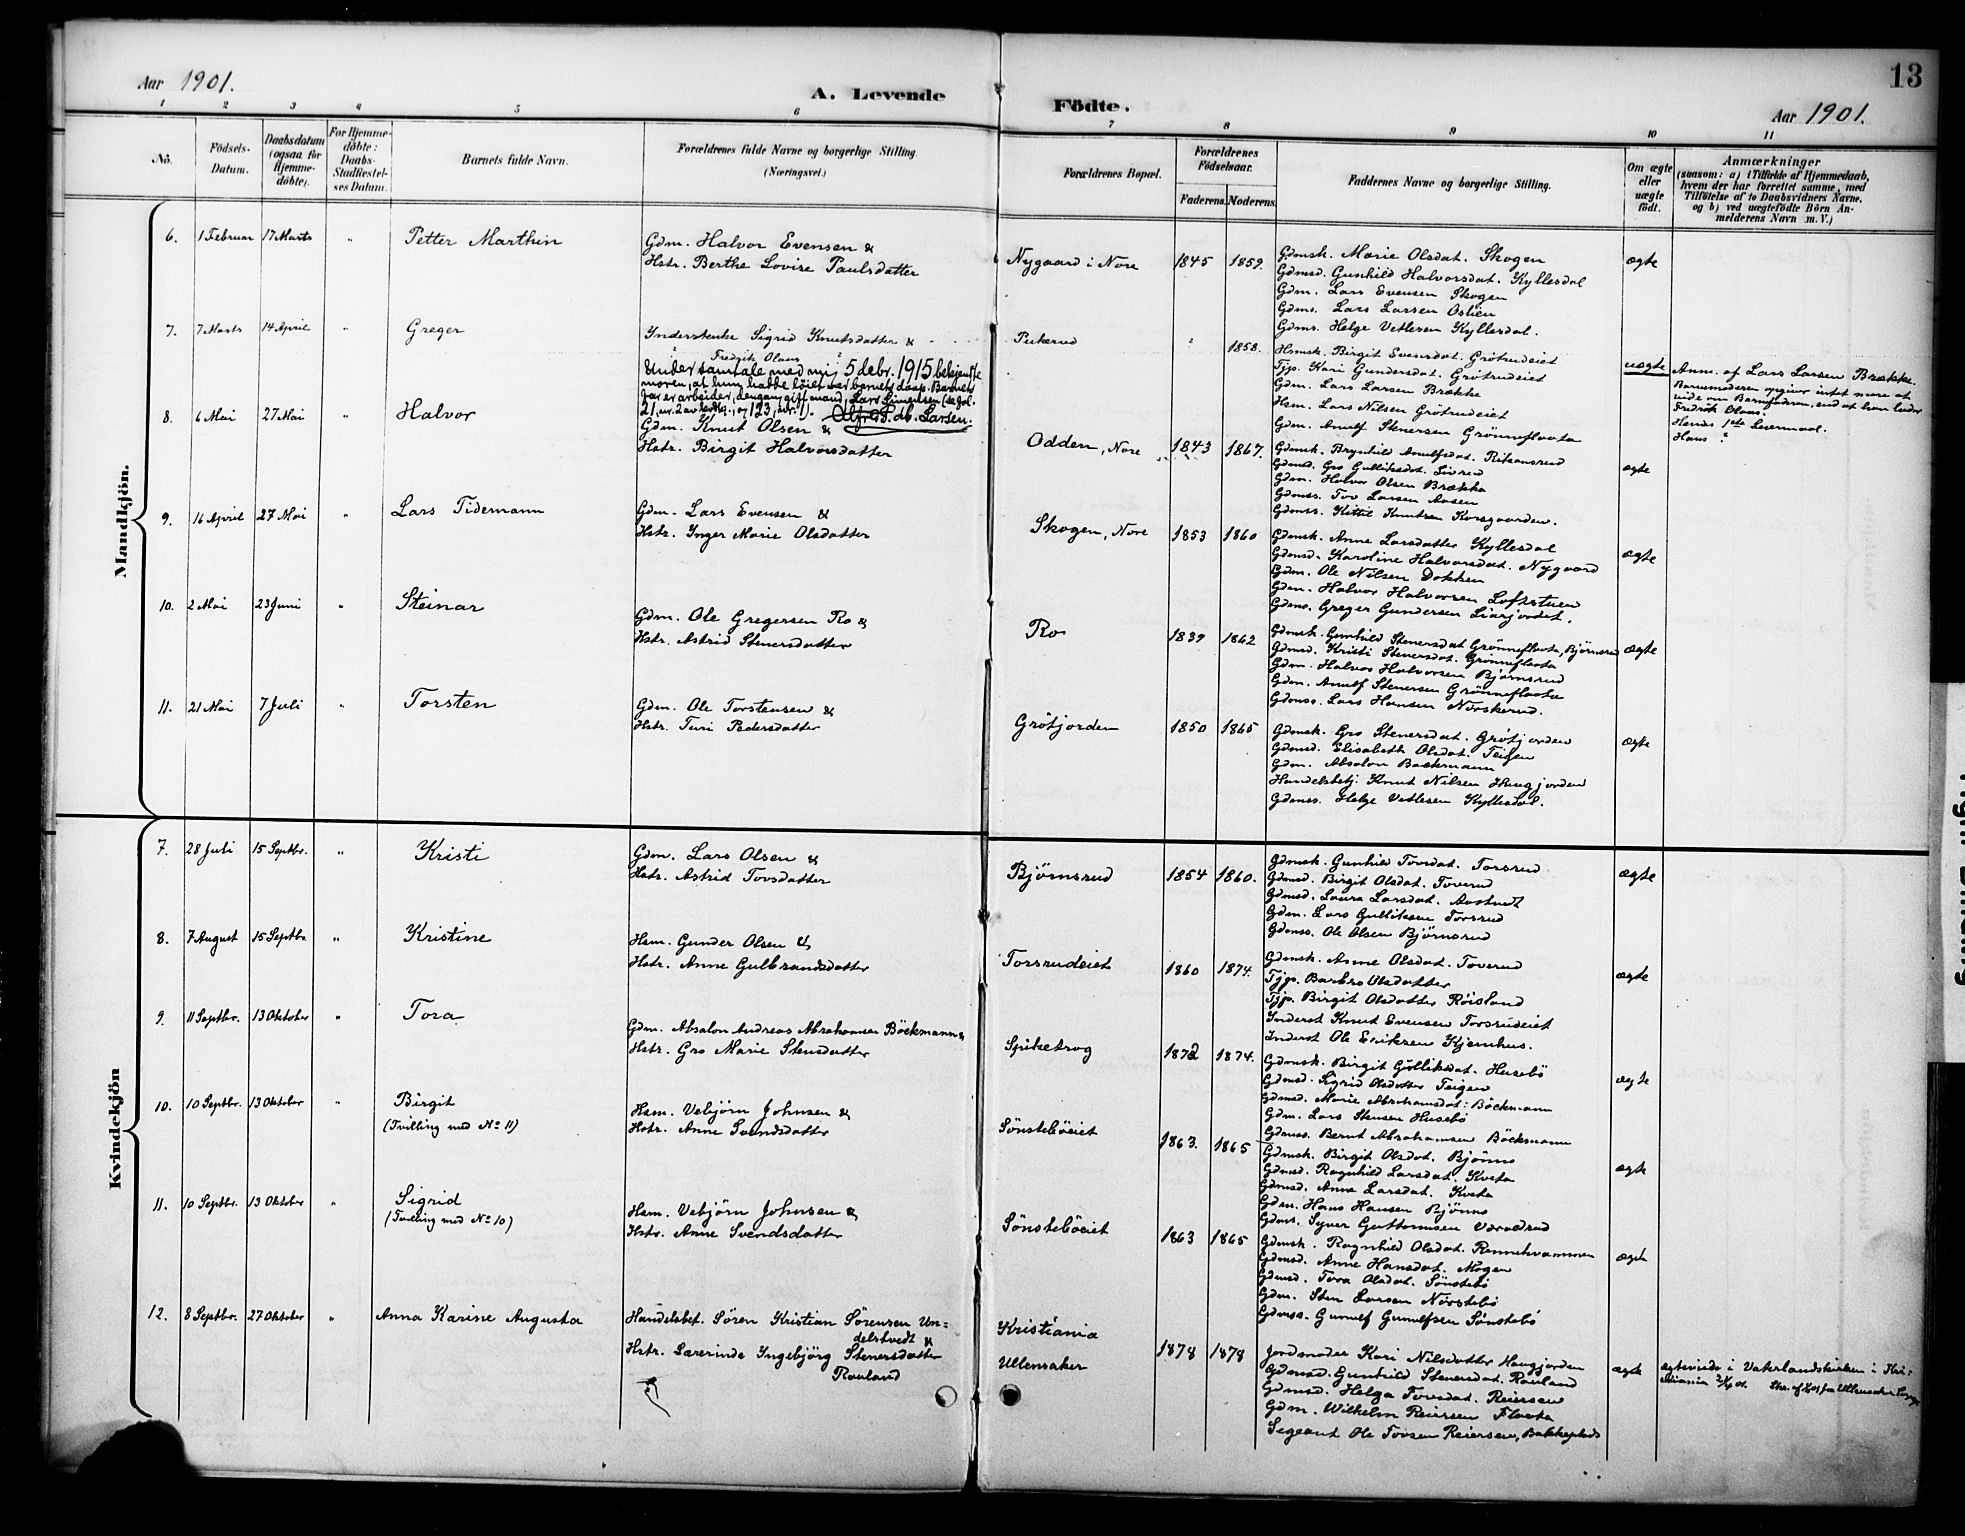 Aar 1901.
A. Levende Födte.
Aar 1901.
13
1 2 3 4 5 6 7 8 9 10 11
No.
Födsels-Datum.
Daabsdatum (ogsaa for Hjemme-döbte).
For Hjemme-döbte: Daabs-Stadfæstel-ses Datum.
Barnets fulde Navn.
Forældrenes fulde Navne og borgerlige Stilling. (Næringsvei.)
Forældrenes Bopæl.
Forældrenes Födselsaar.
Faderens. Moderens.
Faddernes Navne og borgerlige Stilling.
Om ægte eller uægte födt.
Anmærkninger
(saasom: a) i Tilfælde af Hjemmedaab,
hvem der har forrettet samme, med
Tilföielse af to Daabsvidners Navne,
og b) ved uægtefödte Börn An-
melderens Navn m. V.)
Mandkjön.
6. 1 Februar 17 Marts " Petter Marthin
Gdm. Halvor Evensen &
Hstr. Berthe Lovise Paulsdatter
Nygaard i Nore 1845 1859.
Gdmsk. Marie Olsdat. Skogen
Gdmsd. Gunhild Halvorsdat. Kyllesdal
Gdm. Lars Evensen Skogen
Gdms. Lars Larsen Oslien
Gdms. Helge Vetlesen Kyllesdal.
ægte
7. 7 Marts 14 April " Greger
Inderstenke Sigrid Knutsdatter &
Fredrik Olaus
Under samtale med mig 5 debr. 1915 bekjendte
moren, at hun hadde löiet ved barnets daap. Barnets
far er arbeider, dengang gift mand, Lars Simensen (se fol.
21, nr. 2 av levdfg., og 123, nr. 1). Alfred Larsen.
Pukerud " 1858.
Hsmsk. Birgit Evensdat. Grötrudeiet
Tjp. Kari Gundersdat. Grötrudeiet
Gdm. Lars Larsen Brække
Hsm. Lars Nilsen Grötrudeiet
Gdm. Anulf Stenersen Grönneflaata
uægte
Anm. af Lars Larsen Brække.
Barnemoderen opgiver intet mere at
vide om Barnefaderen, end at han heder
Fredrik Olaus.
Hendes 1ste Leiermaal.
Hans "
8. 6 Mai 27 Mai " Halvor
Gdm. Knut Olsen &
Hstr. Birgit Halvorsdatter
Odden, Nore 1843 1867.
Gdmsk. Brynhild Anulfsdat. Riksaasrud
Gdmsd. Gro Gulliksdat. Sivrud
Gdm. Halvor Olsen Brække
Gdmss. Tov Larsen Aasen
Gdmss. Kittil Knutsen Korsgaarden.
ægte
9. 16 April 27 Mai " Lars Tidemann
Gdm. Lars Evensen &
Hstr. Inger Marie Olsdatter
Skogen, Nore 1853 1860
Gdmsk. Anne Larsdatter Kyllesdal
Gdmsd. Karoline Halvorsdat. Nygaard
Gdm. Ole Nilsen Dokken
Gdm. Halvor Halvorsen Loftstuen
Gdms. Greger Gundersen Liajordet.
ægte
10. 2 Mai 23 Juni " Steinar
Gdm. Ole Gregersen Ro &
Hstr. Astrid Stenersdatter
Ro 1839 1862
Gdmsk. Gunhild Stenersdat Grönneflaata, Björnsrud
Gdmsd. Kristi Stenersdat. Grönneflaata
Gdm. Halvor Halvorsen Björnsrud
Gdm. Anulf Stenersen Grönneflaata
Gdmss. Lars Hansen Norskerud.
ægte
11. 21 Mai 7 Juli " Torsten
Gdm. Ole Torstensen &
Hstr. Turi Pedersdatter
Grötjorden 1850 1865
Gdmsk. Gro Stenersdat. Grötjorden
Gdmsd. Elisabeth Olsdat. Teigen
Gdm. Absalon Bøckmann
Handelsbetj. Knut Nilsen Haugjorden
Gdmss. Helge Vetlesen Kyllesdal.
ægte
Kvindekjön
7. 28 Juli 15 Septbr. " Kristi
Gdm. Lars Olsen &
Hstr. Astrid Tovsdatter
Björnsrud 1854 1860.
Gdmsk. Gunhild Tovsdat. Torsrud
Gdmsd. Birgit Olsdat. Toverud
Gdmsd. Laura Larsdat. Aastvedt
Gdm. Lars Gulliksen Torsrud
Gdmss. Ole Olsen Björnsrud
ægte
8. 7 August 15 Septbr " Kristine
Hsm. Gunder Olsen &
Hstr. Anne Gulbrandsdatter
Torsrudeiet 1860 1874.
Gdmsk. Anne Olsdat. Toverud
Tjp. Barbro Olsdatter
Tjp. Birgit Olsdatter Röisland
Inderst Knut Evensen Torsrudeiet
Inderst Ole Eriksen Kjemhus.
ægte
9. 11 Septbr. 13 Oktober " Tora
Gdm. Absalon Andreas Abrahamsen Böckmann &
Hstr. Gro Marie Stensdatter
Spiketrog 1872 1874.
Gdmsk. Birgit Gulliksdat. Husebö
Gdmsd. Sigrid Olsdatter Teigen
Gdmsd. Marie Abrahamsdat. Böckmann
Gdm. Lars Stensen Husebö
Gdmss. Bernt Abrahamsen Böckmann
ægte
10. 10 Septbr. 13 Oktober " Birgit
(Tvilling med No 11)
Hsm. Vebjörn Johnsen &
Hstr. Anne Svendsdatter
Sönsteböeiet 1863. 1865
Gdmsk. Birgit Olsdat. Bjönnes
Gdmsd. Ragnhild Larsdat. Kveta
Gdmsd. Anne Larsdat. Kveta
Gdm. Hans Hansen Bjönnes
Gdms. Syver Guttormsen Værvalsrud
ægte
11. 10 Septbr. 13 Oktober " Sigrid
(Tvilling med No 10)
Hsm. Vebjörn Johnsen &
Hstr. Anne Svendsdatter
Sönsteböeiet 1863 1865
Gdmsk. Ragnhild Olsdat. Rennehvammen
Gdmsd. Anne Hansdat. Mogen
Gdmsd. Tora Olsdat. Sönstebö
Gdm. Sten Larsen Norstebö
Gdmss. Gunulf Gunulfsen Sönstebö
ægte
12. 8 Septbr. 27 Oktober " Anna Karine Augusta
Handelsbet. Sören Kristian Sörensen Un=
delstvedt &
Hstr. Lærerinde Ingebjörg Stenersdatter
Rauland
Kristiania
Ullensaker
1878 1878
Jordmoder Kari Nilsdatter Haugjorden
Gdmsd. Gunhild Stenersdat. Rauland
Gdmsd. Helga Tovsdat. Reiersen
Gdm. Wilhelm Reiersen Flaata
Sergeant Ole Tovsen Reiersen, Bakkeplads
ægte
ægteviede i Vaterlandskirken i Kri=
stiania